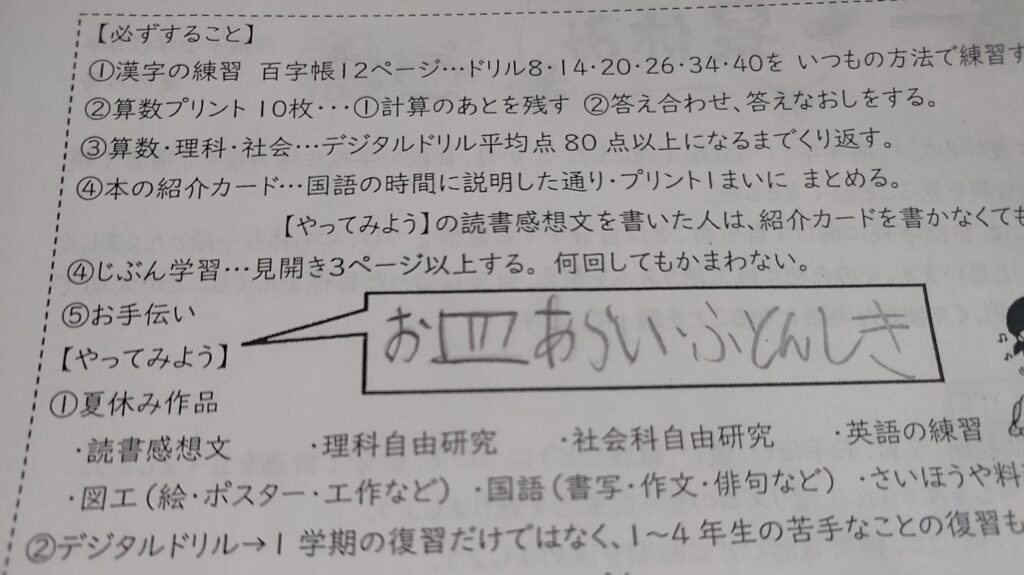 【必ずすること】
①漢字の練習 百字帳12ページ…ドリル8・14・20・26・34・40を いつもの方法で練習す
②算数プリント 10枚・・・①計算のあとを残す ②答え合わせ、答えなおしをする。
③算数・理科・社会…デジタルドリル平均点 80 点以上になるまでくり返す。
④本の紹介カード…国語の時間に説明した通り・プントlまいに まとめる。
【やってみよう】の読書感想文を書いた人は、紹介カードを書かなくても
④じぶん学習…見開き3ページ以上する。何回してもかまわない。
⑤お手伝い
お皿あらい・ふとんしき
【やってみよう】
①夏休み作品
・読書感想文 ・理科自由研究 ・社会科自由研究 ・英語の練習
・図工(絵・ポスター・工作など) ・国語(書写・作文・俳句など) ・さいほうや料
②デジタルドリル→1 学期の復習だけではなく、1～4 年生の苦手なことの復習も